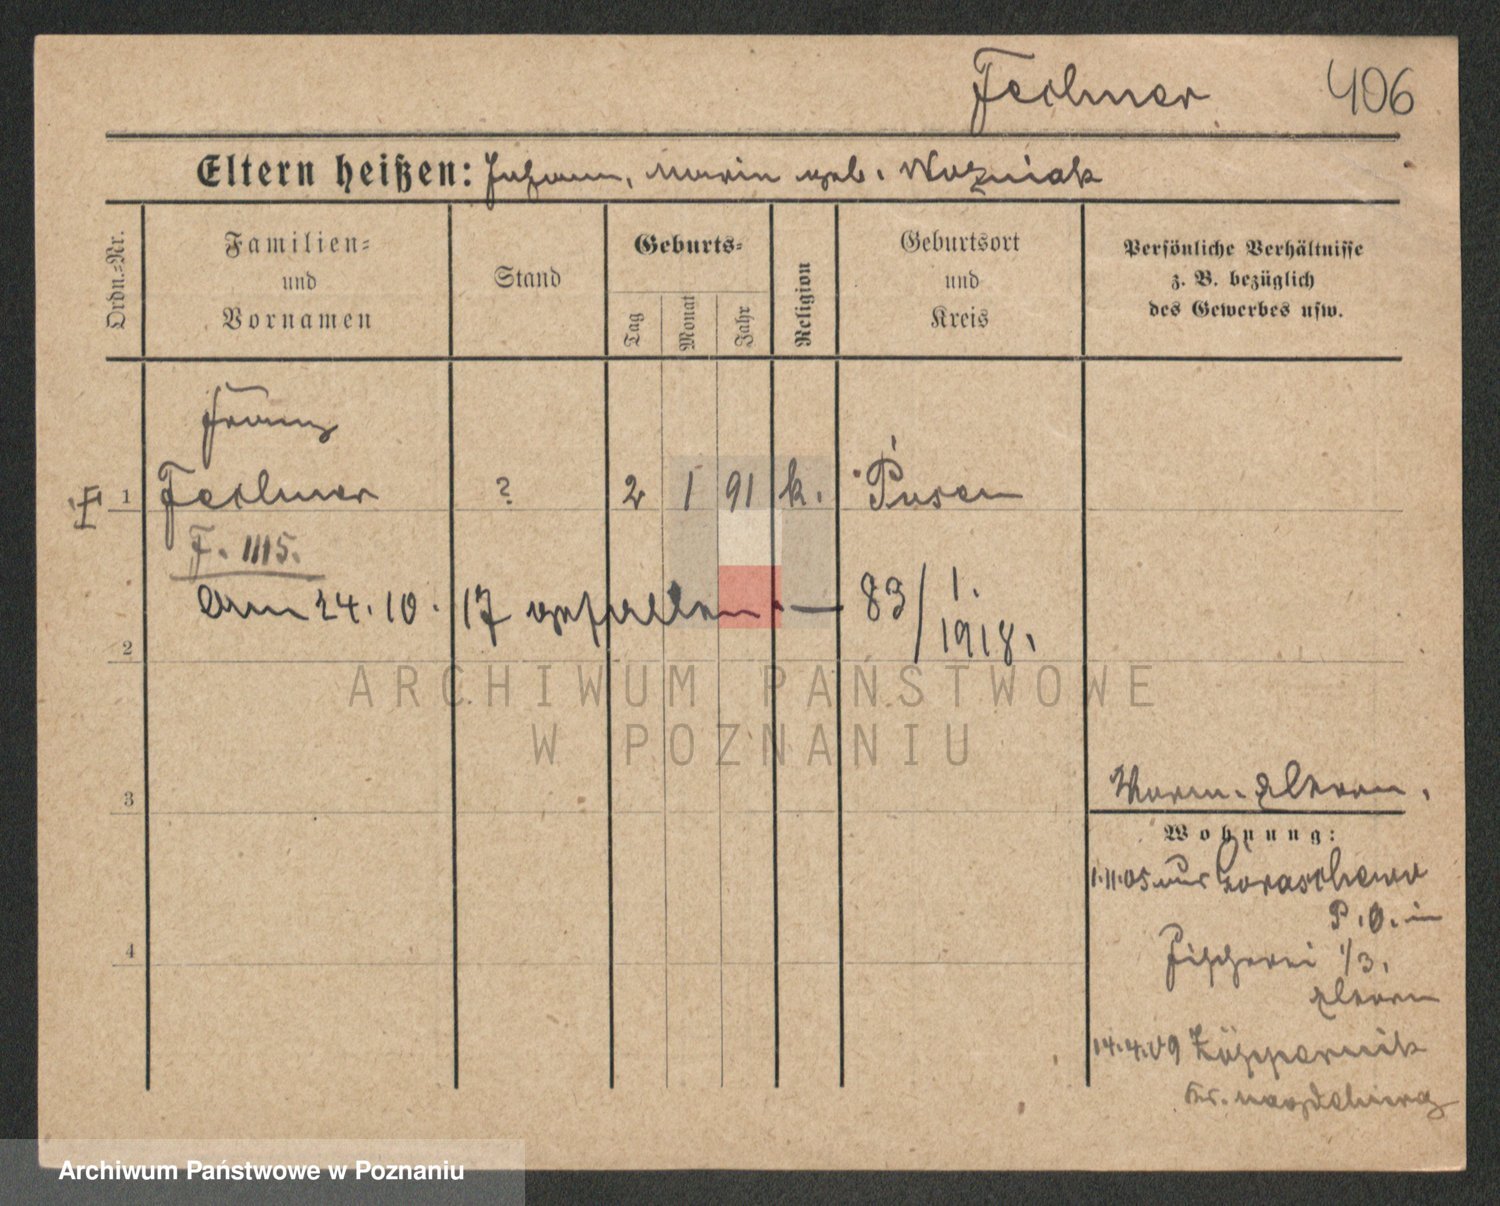 Fechner 406
Eltern heißen: Johann, Maria geb. Wozniak
Ordn.=Nr.
Familien=
und
Vornamen
Stand
Geburts=
Tag
Monat
Jahr
Religion
Geburtsort
und
Kreis
Persönliche Verhältnisse
z. B. bezüglich
des Gewerbes usw.
Franz
1 Fechner ? 2 1 91 k. Posen
F. 1115.
Am 24. 10. 17 gefallen. — 83/1.
1918.
2
3
4
Eltern.
Wohnung:
1.11.05 aus Goraschewo
P. O. in
Fischerei 1/3.
Eltern
14.4.09
Kr. Magdeburg
ARCHIWUM PAŃSTWOWE
W POZNANIU
Archiwum Państwowe w Poznaniu